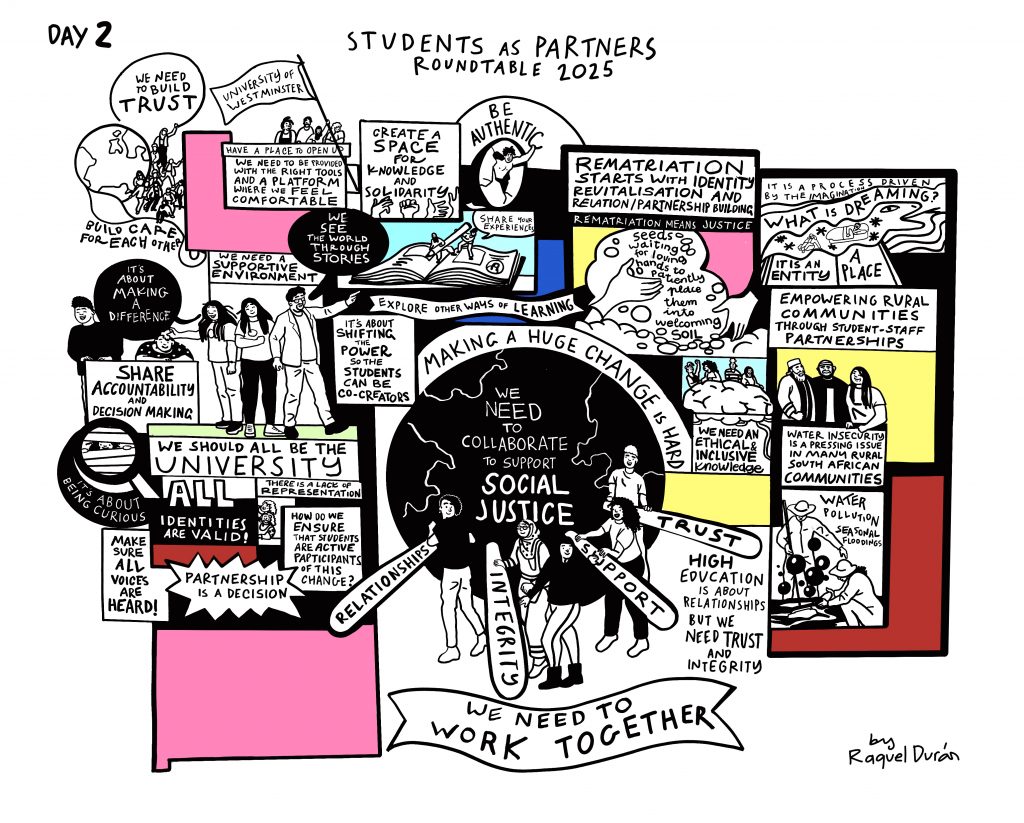 DAY 2
STUDENTS AS PARTNERS
ROUNDTABLE 2025
WE NEED
TO BUILD
TRUST
UNIVERSITY OF
WESTMINSTER
BUILD CARE
FOR EACH OTHER
HAVE A PLACE TO OPEN UP
WE NEED TO BE PROVIDED
WITH THE RIGHT TOOLS
AND A PLATFORM
WHERE WE FEEL
COMFORTABLE
CREATE A
SPACE
FOR
KNOWLEDGE
AND
SOLIDARITY
BE
AUTHENTIC
WE
SEE
THE WORLD
THROUGH
STORIES
SHARE YOUR
EXPERIENCES
EXPLORE OTHER WAYS OF LEARNING
REMATRIATION
STARTS WITH IDENTITY
REVITALISATION AND
RELATION/PARTNERSHIP BUILDING
REMATRIATION MEANS JUSTICE
seeds
waiting
for loving
hands to
patiently
place
them
into
welcoming
soil
IT IS A PROCESS DRIVEN
BY THE IMAGINATION
WHAT IS DREAMING?
IT IS AN
ENTITY
A
PLACE
WE NEED A
SUPPORTIVE
ENVIRONMENT
IT'S
ABOUT
MAKING
A
DIFFERENCE
SHARE
ACCOUNTABILITY
AND
DECISION MAKING
IT'S ABOUT
SHIFTING
THE
POWER
SO THE
STUDENTS
CAN BE
CO-CREATORS
WE SHOULD ALL BE THE
UNIVERSITY
IT'S ABOUT
BEING CURIOUS
ALL
IDENTITIES
ARE VALID!
THERE IS A LACK OF
REPRESENTATION
HOW DO WE
ENSURE
THAT STUDENTS
ARE ACTIVE
PARTICIPANTS
OF THIS
CHANGE?
MAKE
SURE
ALL
VOICES
ARE
HEARD!
PARTNERSHIP
IS A DECISION
MAKING A HUGE CHANGE IS HARD
WE
NEED
TO
COLLABORATE
TO SUPPORT
SOCIAL
JUSTICE
RELATIONSHIPS
INTEGRITY
SUPPORT
TRUST
WE NEED AN
ETHICAL &
INCLUSIVE
Knowledge
EMPOWERING RURAL
COMMUNITIES
THROUGH STUDENT-STAFF
PARTNERSHIPS
WATER INSECURITY
IS A PRESSING ISSUE
IN MANY RURAL
SOUTH AFRICAN
COMMUNITIES
WATER
POLLUTION
SEASONAL
FLOODINGS
HIGH
EDUCATION
IS ABOUT
RELATIONSHIPS
BUT WE
NEED TRUST
AND
INTEGRITY
WE NEED TO
WORK TOGETHER
by
Raquel Durán